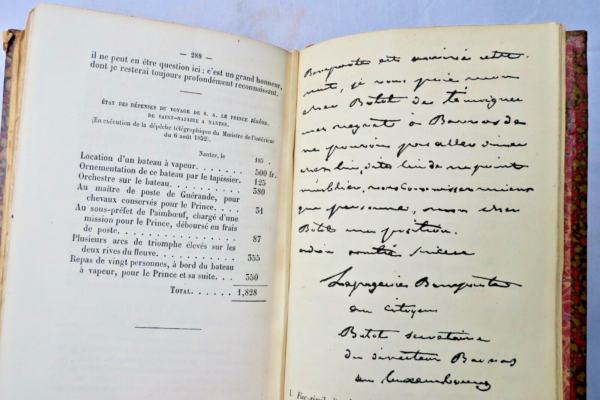 — 288 —
il ne peut en être question ici ; c'est un grand honneur,
dont je resterai toujours profondément reconnaissant.
ÉTAT DES DÉPENSES DU VOYAGE DE S. A. LE PRINCE JÉRÔME,
DE SAINT-NAZAIRE A NANTES.
(En exécution de la dépêche télégraphique du Ministre de l'intérieur
du 6 août 1852).
Nantes, le 185 .
Location d'un bateau à vapeur. . . . . . . 500 fr.
Ornementation de ce bateau par le tapissier. 125
Orchestre sur le bateau. . . . . . . . . 380
Au maître de poste de Guérande, pour
chevaux conservés pour le Prince. . . . 31
Au sous-préfet de Paimbœuf, chargé d'une
mission pour le Prince, déboursé en frais
de poste. . . . . . . . . . . . . . 87
Plusieurs arcs de triomphe élevés sur les
deux rives du fleuve. . . . . . . . . 355
Repas de vingt personnes, à bord du bateau
à vapeur, pour le Prince et sa suite. . . 350
TOTAL. . . . . . . 1,828
Bonaparte est arrivé cette
nuit, je vous prie mon
cher Botot de témoigner
mes regrets à Barras de
ne pouvoir pas aller dîner
chez lui, dites lui de ne point
m'oublier, vous connaissez mieux
que personne, mon cher
Botot ma position.
adieu amitié sincère
Lapagerie Bonaparte
au citoyen
Botot secretaire
du directeur Barras
au Luxembourg